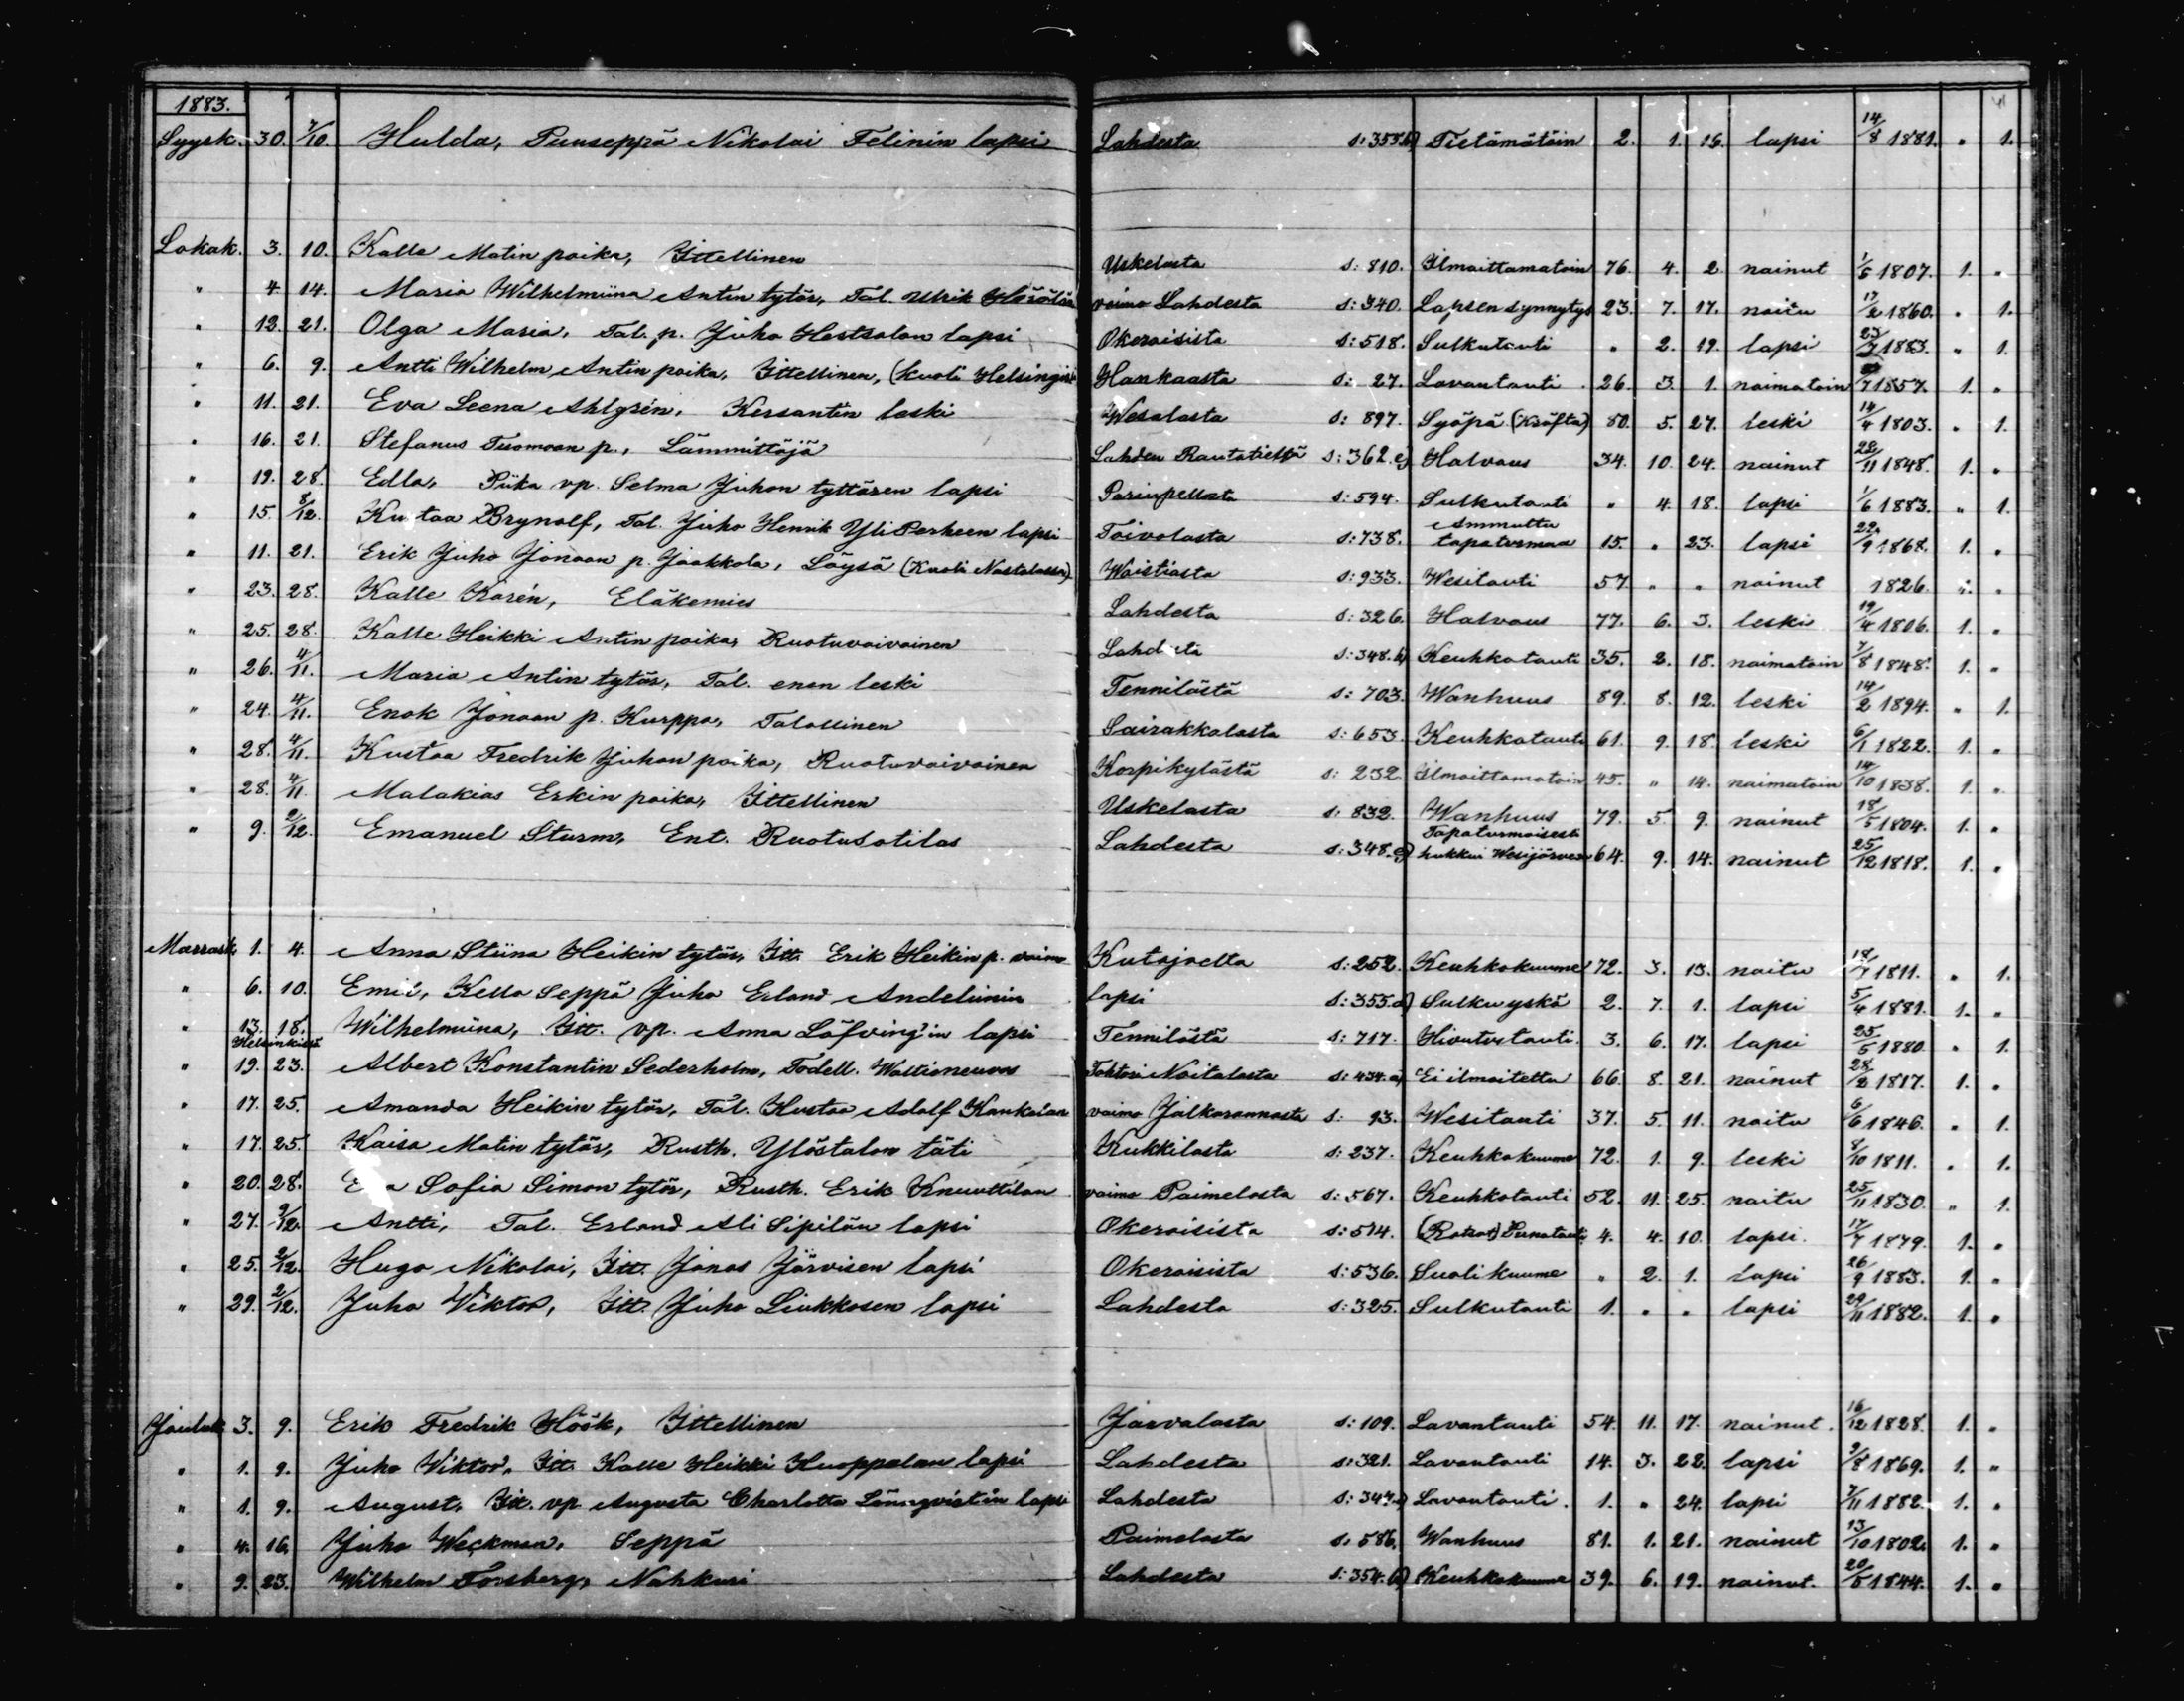 1883.
Syysk. 30. 7/10. Hulda, Puuseppä Nikolai Felinin lapsi Lahdesta s: 353.b) Tietämätöin 2. 1. 16. lapsi 14/8 1881. " 1.
Lokak. 3. 10. Kalle Matin poika, Ittellinen Uskelasta s: 810. Ilmoittamatoin 76. 4. 2. nainut 1/5 1807. 1. "
" 4. 14. Maria Wilhelmiina Antin tytär, Tal. Ulrik vaimo Lahdesta s: 340. Lapsensynnytys 23. 7. 17. naitu 17/2 1860. " 1.
" 12. 21. Olga Maria, Tal. p. Juho Hertsalan lapsi Okeroisista s: 518. Sulkutauti " 2. 19. lapsi 23/7 1883. " 1.
" 6. 9. Antti Wilhelm Antin poika, Ittellinen, (kuoli Helsingis) Hankaasta s: 27. Lavantauti 26. 3. 1. naimatoin 1857. 1. "
" 11. 21. Eva Leena Ahlgrén, Kersantin leski Wesalasta s: 897. Syöpä (Kräfta) 80. 5. 27. leski 14/4 1803. " 1.
" 16. 21. Stefanus Tuomaan p., Lämmittäjä Lahden Rautatieltä s: 362.c) Halvaus 34. 10. 24. nainut 22/11 1848. 1. "
" 19. 28. Edla, Piika vp. Selma Juhon tyttären lapsi Parinpellosta s: 594. Sulkutauti " 4. 18. lapsi 1/6 1883. " 1.
" 15. 8/12. Kustaa Brynolf, Tal. Juho Henrik YliPerheen lapsi Toivolasta s: 738. Ammuttu tapaturmaa 15. " 23. lapsi 22/9 1868. 1. "
" 11. 21. Erik Juho Jonaan p. Jaakkola, Löysä (Kuoli Nastolassa) Woistiosta s: 933. Wesitauti 57. " " nainut 1826. 1. "
" 23. 28. Kalle Karén, Eläkemies Lahdesta s: 326. Halvaus 77. 6. 3. leski 19/4 1806. 1. "
" 25. 28. Kalle Heikki Antin poika, Ruotuvaivainen Lahdesti s: 348.b) Keuhkotauti 35. 2. 18. naimatoin 7/8 1848. 1. "
" 26. 4/11. Maria Antin tytär, Tal. enen leski Tennilästä s: 703. Wanhuus 89. 8. 12. leski 14/2 1894. " 1.
" 24. 4/11. Enok Jonaan p. Kurppa, Talollinen Sairakkalasta s: 653. Keuhkotauti 61. 9. 18. leski 6/1 1822. 1. "
" 28. 4/11. Kustaa Fredrik Juhan poika, Ruotuvaivainen Korpikylästä s: 232. Ilmoittamatoin 45. " 14. naimatoin 14/10 1838. 1. "
" 28. 4/11. Malakias Erkin poika, Ittellinen Uskelasta s: 832. Wanhuus 79. 5. 9. nainut 18/5 1804. 1. "
" 9. 2/12. Emanuel Sturm, Ent. Ruotusotilas Lahdesta s: 348.c) Tapaturmaisesti hukkui Wesijärveen 64. 9. 14. nainut 25/12 1818. 1. "
Marrask. 1. 4. Anna Stiina Heikin tytär, Itt. Erik Heikin p. vaimo Kutajoelta s: 252. Keuhkokuume 72. 3. 13. naitu 18/7 1811. " 1.
" 6. 10. Emil, Kello Seppä Juho Erland Andelinin lapsi s: 355.a) Sulkuyskä 2. 7. 1. lapsi 5/4 1881. 1. "
" 13. 18. Wilhelmiina, Itt. vp. Anna Löfving'in lapsi Tennilästä s: 717. Hivutustauti. 3. 6. 17. lapsi 25/5 1880 " 1.
Helsinkissä
" 19. 23. Albert Konstantin Sederholm, Todell. Waltioneuvos Tohtori Noitalasta s: 434.a) Ei ilmoitettu 66. 8. 21. nainut 28/2 1817. 1. "
" 17. 25. Amanda Heikin tytär, Tal. Kustaa Adolf Kankalan vaimo Jalkarannasta s: 93. Wesitauti 37. 5. 11. naitu 6/6 1846. " 1.
" 17. 25. Kaisa Matin tytär, Rusth. Ylöstalon täti Kukkilasta s: 237. Keuhkokuume 72. 1. 9. leski 8/10 1811. " 1.
" 20. 28. Sofia Simon tytär, Rusth. Erik Knuuttilan vaimo Paimelasta s: 567. Keuhkotauti 52. 11. 25. naitu 25/11 1830. " 1.
" 27. 2/12. Antti, Tal. Erland Ali Sipilän lapsi Okeroisista s: 514. 4. 4. 10. lapsi. 17/7 1879. 1. "
" 25. 2/12. Hugo Nikolai, Itt. Jonas Järvisen lapsi Okeroisista s: 536. Suolikuume " 2. 1. lapsi 26/9 1883. 1. "
" 29. 2/12. Juho Wiktor, Itt. Juho Liukkosen lapsi Lahdesta s: 325. Sulkutauti 1. " " lapsi 29/11 1882. 1. "
Jouluk. 3. 9. Erik Fredrik Höök, Ittellinen Järvalasta s: 109. Lavantauti 54. 11. 17. nainut. 16/12 1828. 1. "
" 1. 9. Juho Wiktor, Itt. Kalle Heikki Kuoppalan lapsi Lahdesta s: 321. Lavantauti 14. 3. 22. lapsi 9/8 1869. 1. "
" 1. 9. August, Itt. vp Augusta Charlotta Lönnqvistin lapsi Lahdesta s: 347. Lavantauti. 1. " 24. lapsi 7/11 1882. 1. "
" 4. 16. Juho Weckman, Seppä Paimelasta s: 586. Wanhuus 81. 1. 21. nainut 13/10 1802. 1. "
" 9. 23. Wilhelm Forsberg, Nahkuri Lahdesta s: 354.b) Keuhkokuume 39. 6. 19. nainut. 20/5 1844. 1. "